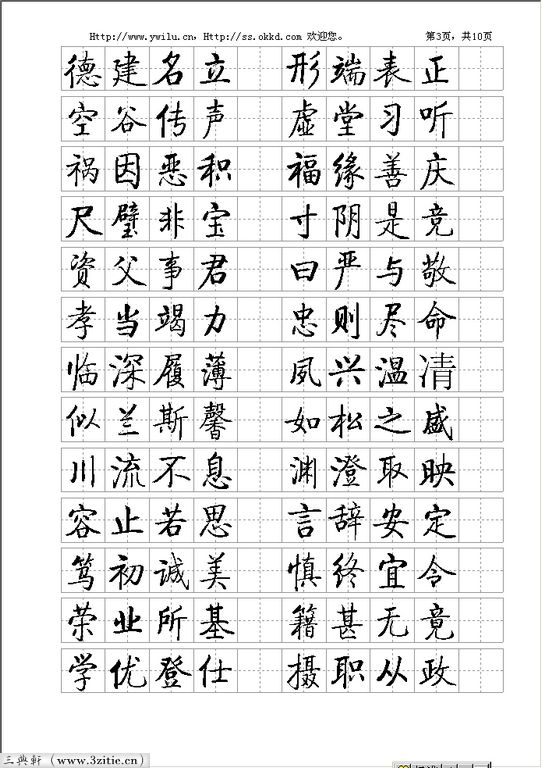 Http://www.ywilu.cn，Http://ss.okkd.com 欢迎您。 第3页，共10页
德建名立 形端表正
空谷传声 虚堂习听
祸因恶积 福缘善庆
尺璧非宝 寸阴是竞
资父事君 曰严与敬
孝当竭力 忠则尽命
临深履薄 夙兴温凊
似兰斯馨 如松之盛
川流不息 渊澄取映
容止若思 言辞安定
笃初诚美 慎终宜令
荣业所基 籍甚无竟
学优登仕 摄职从政
三典轩（www.3zitie.cn）